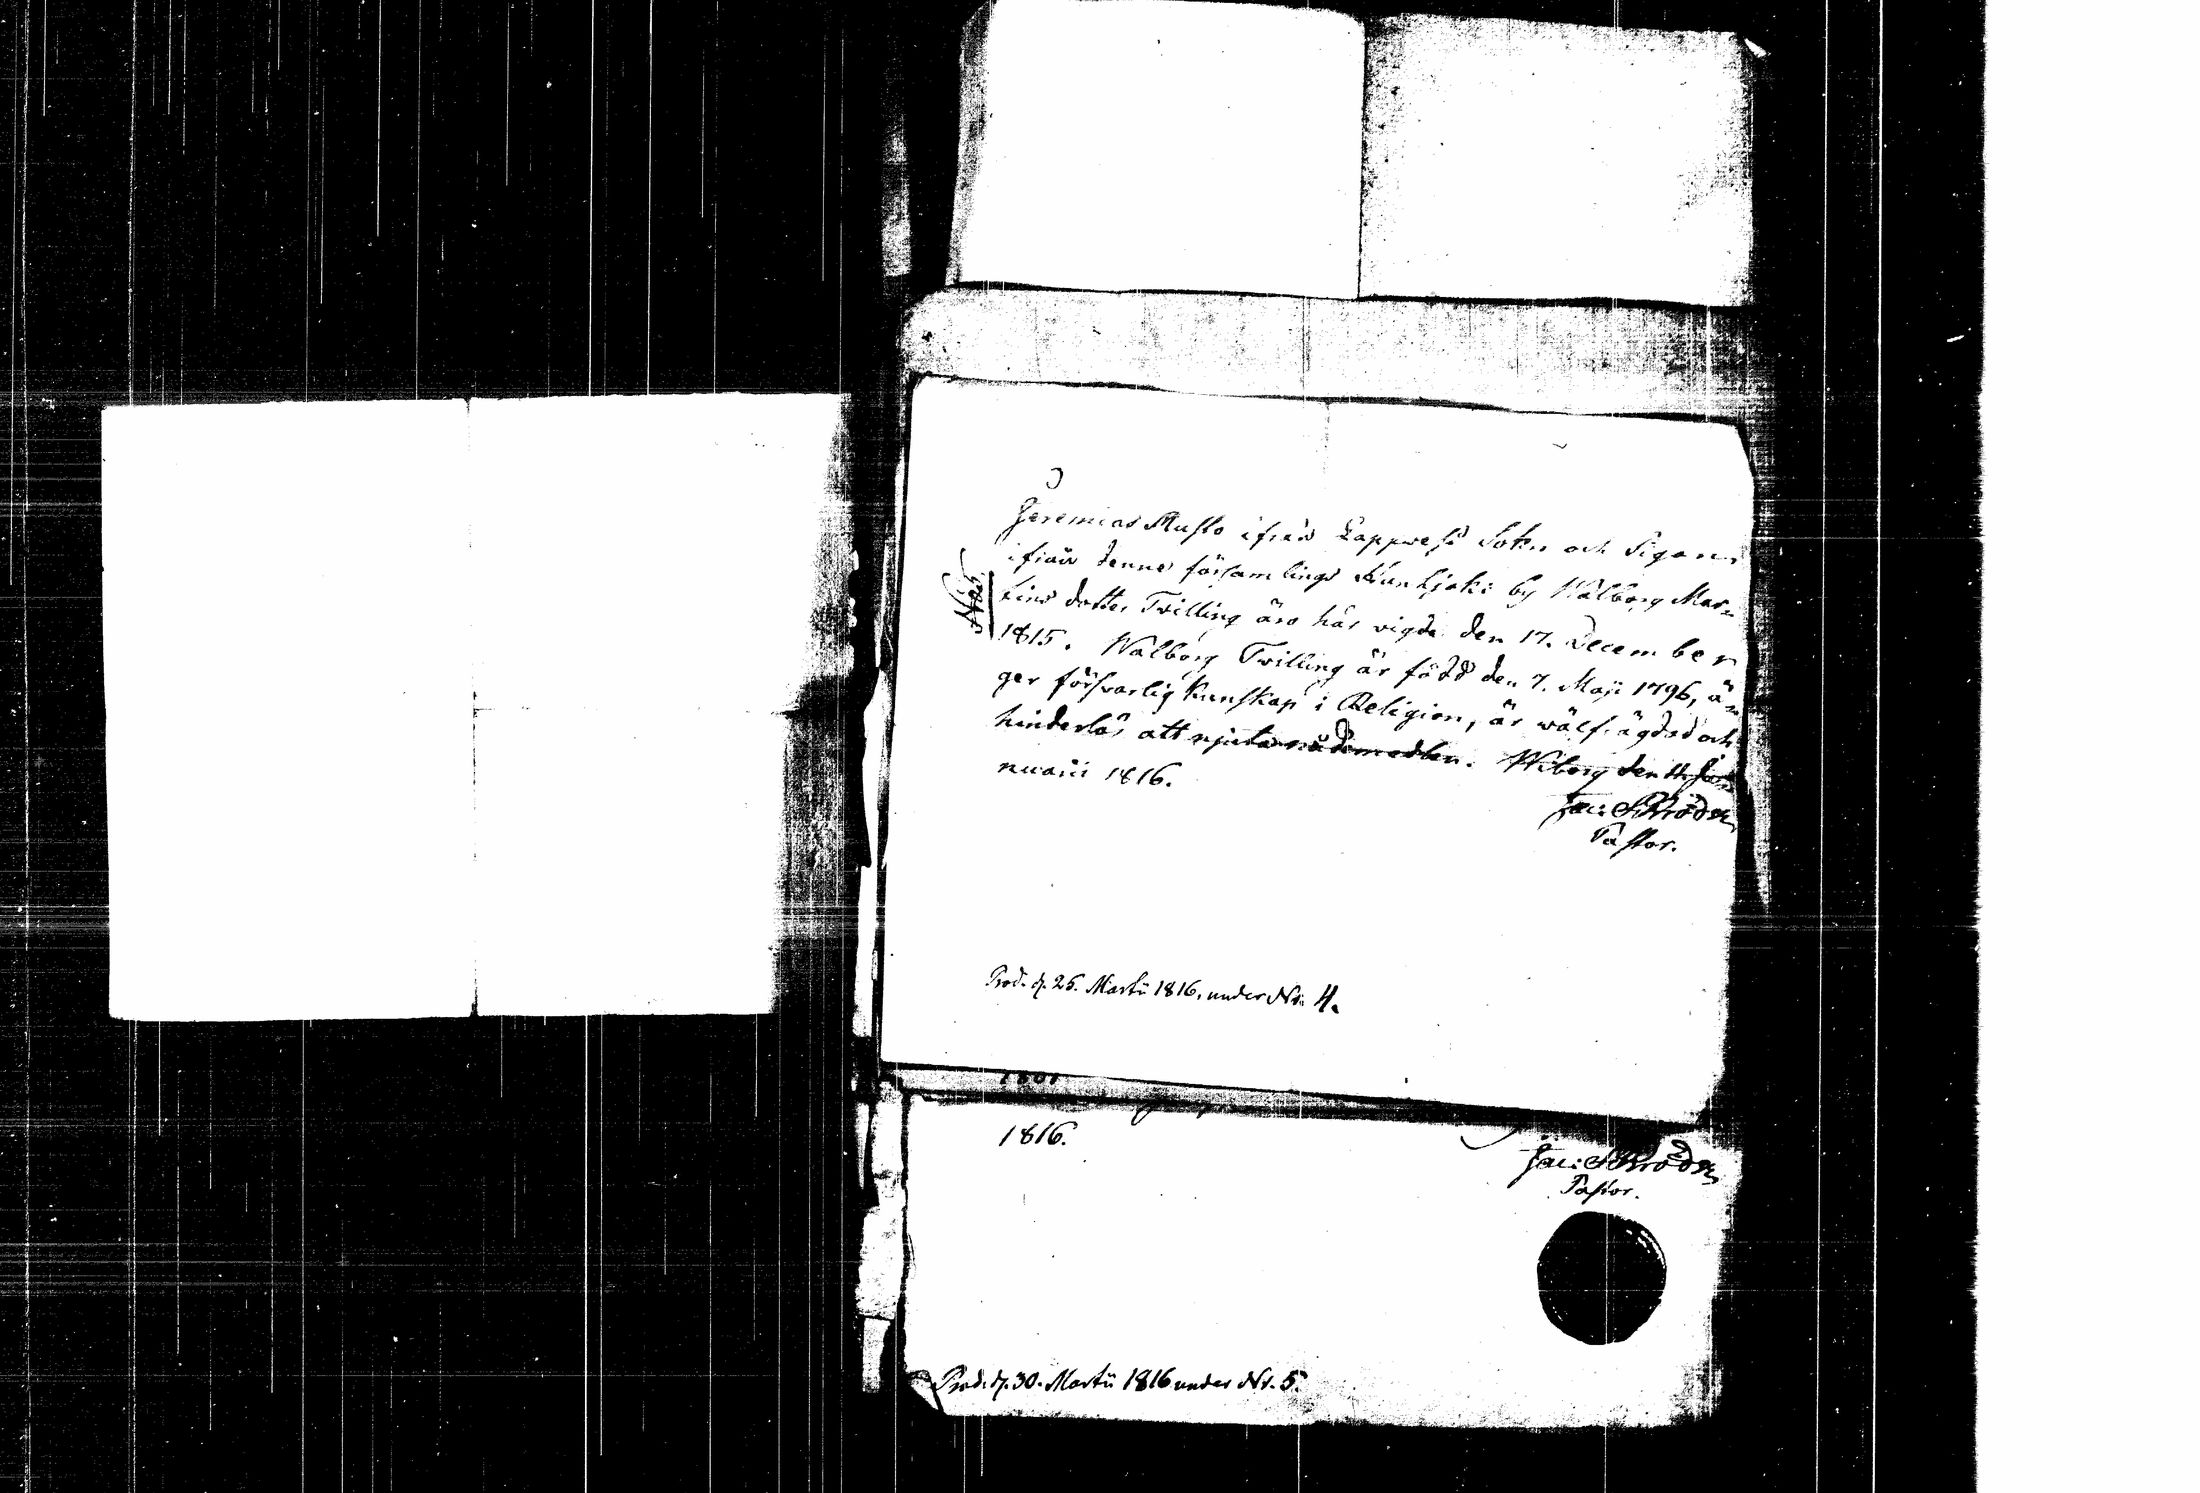 Jeremias Musto ifrån Lappwesi Sokn och Pigan
ifrån denne församlings Kankjoki by Wålborg Mar-
tins dotter Twilling äro här vigde den 17. December
1815. Wålborg Twilling är född den 7. Maji 1796, ä-
ger försvarlig kunskap i Religion, är wälfrägdad och
hinderlös att njuta nådemedlen. Wiborg den 11. Ja-
nuarii 1816.
Pastor.
Prod. d. 26. Martii 1816, under Nr. 4.
1816.
Pastor.
Prod. d. 30. Martii 1816 under Nr. 5.